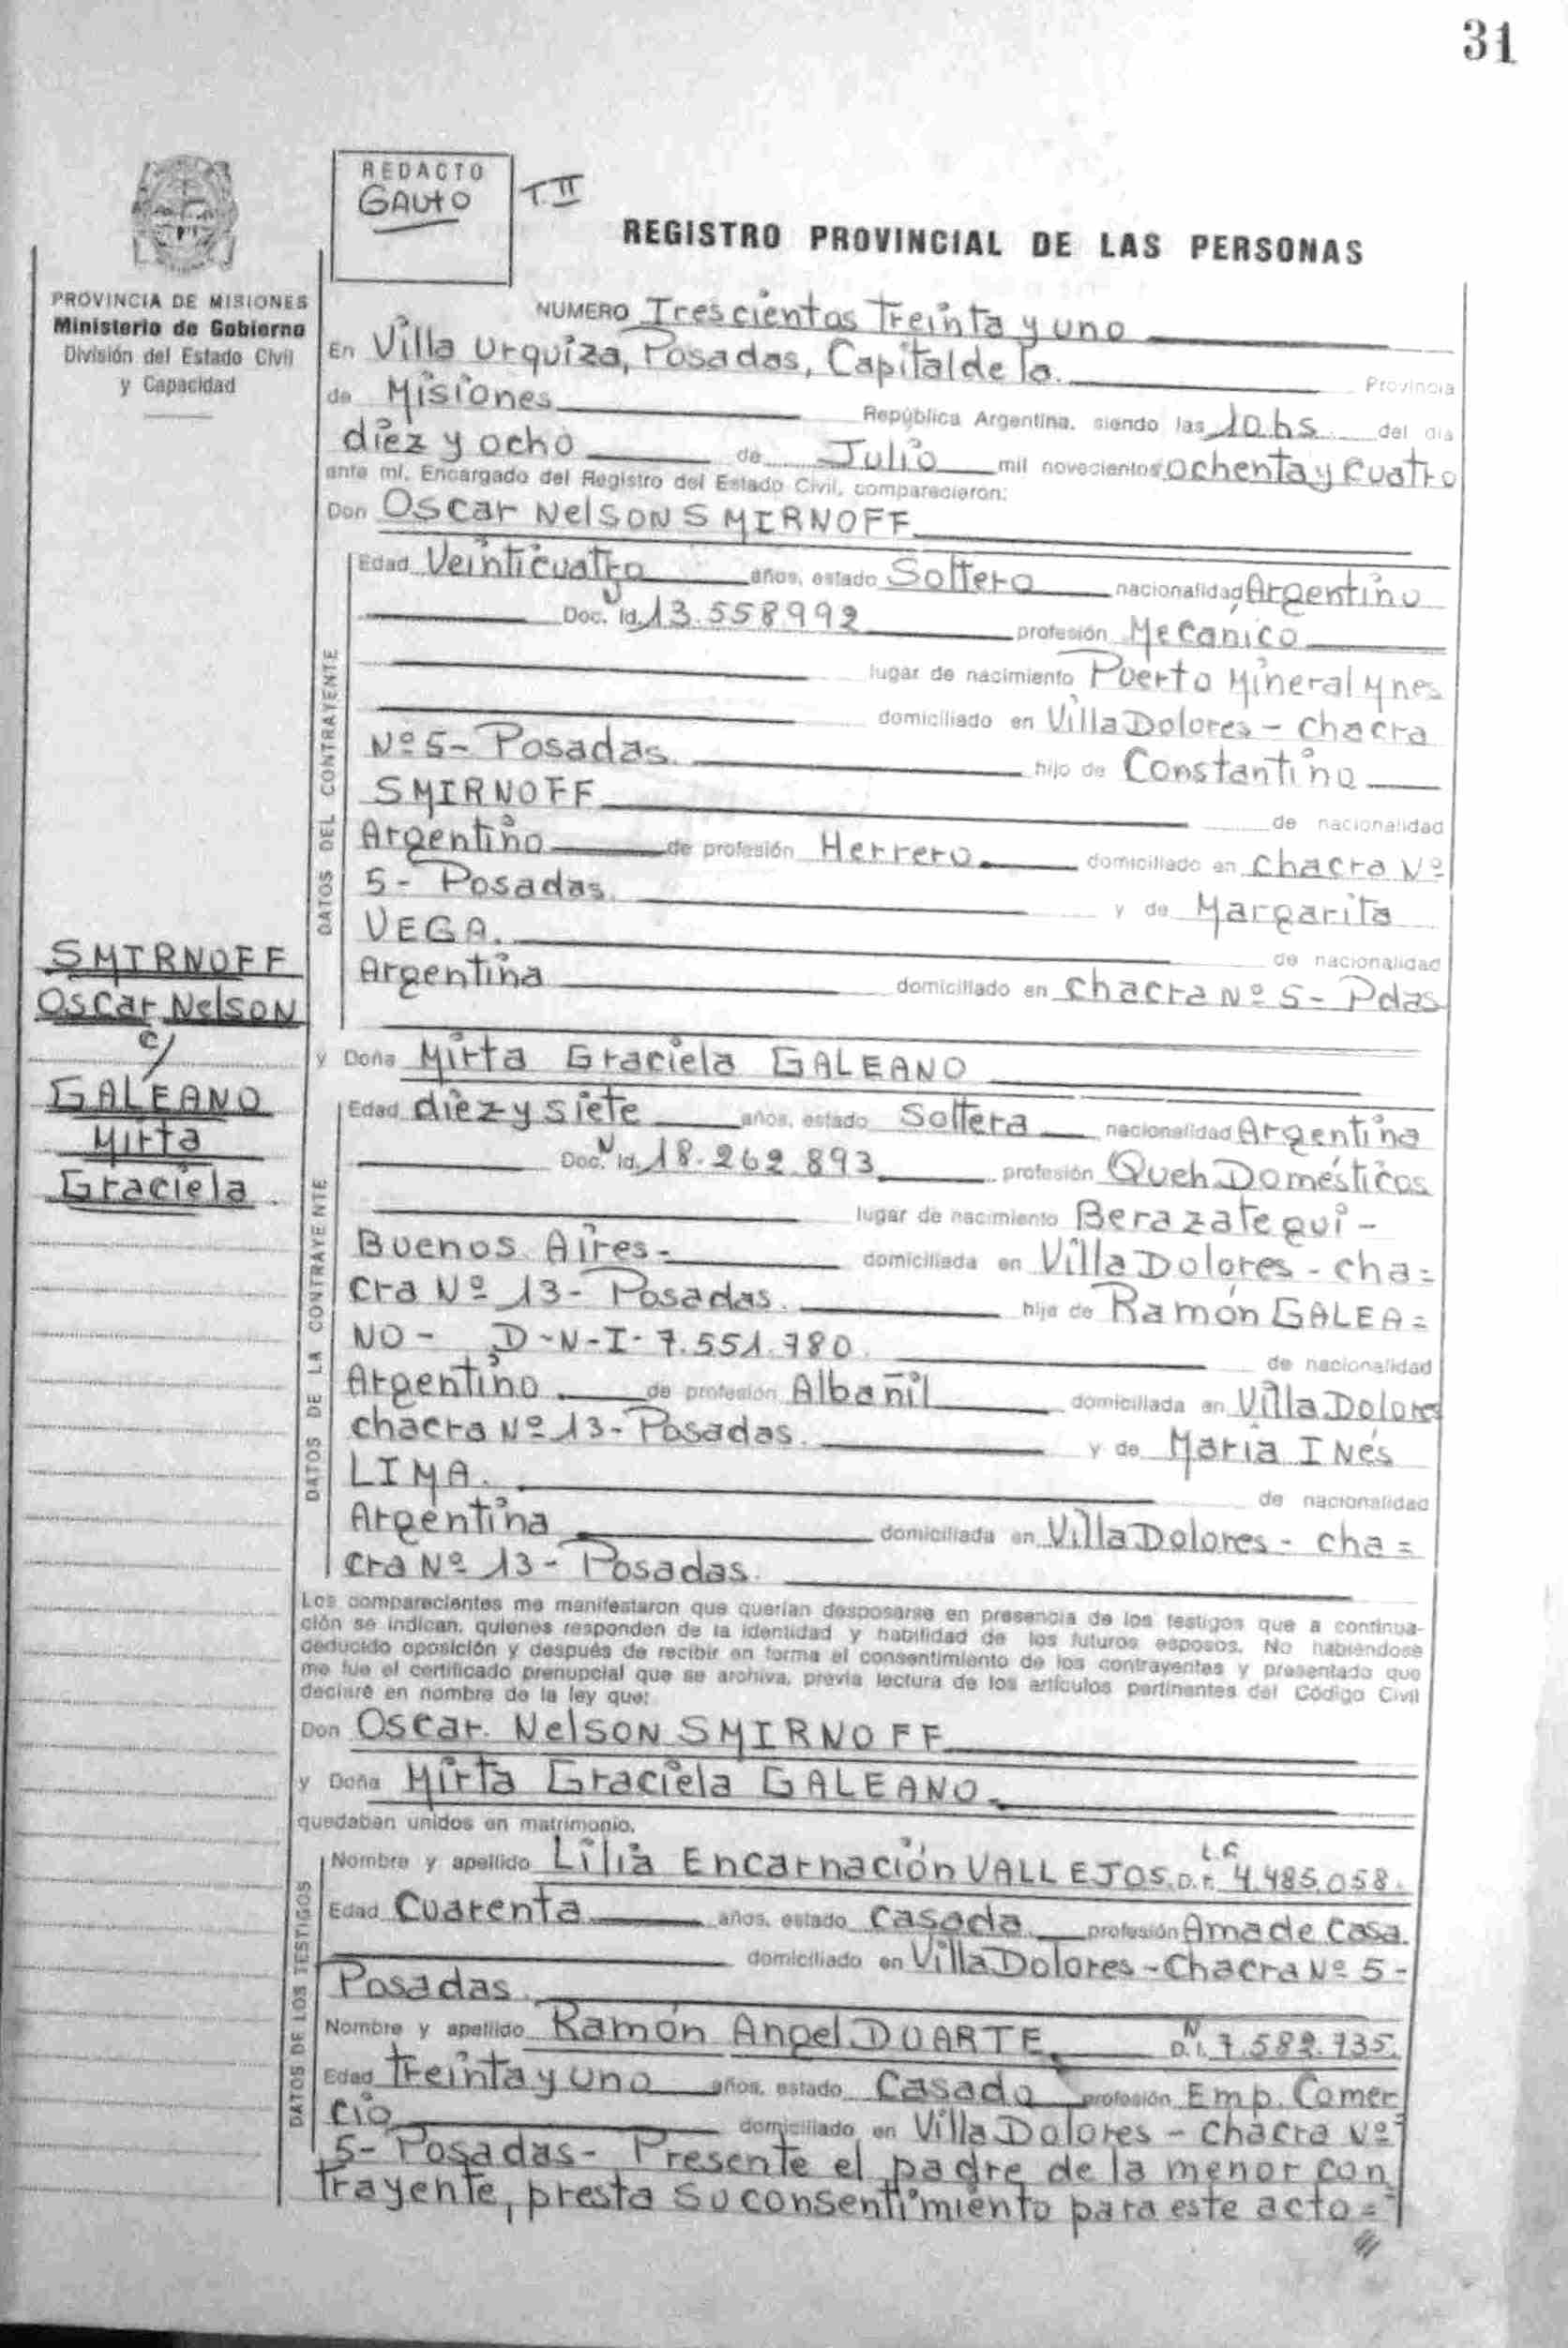 31
REDACTO
GAUTO
T.II
REGISTRO PROVINCIAL DE LAS PERSONAS
PROVINCIA DE MISIONES
Ministerio de Gobierno
División del Estado Civil
y Capacidad
NUMERO Trescientos Treinta y uno
En Villa Urquiza, Posadas, Capital de la Provincia
de Misiones República Argentina, siendo las 10 hs del día
diez y ocho de Julio mil novecientos ochenta y cuatro
ante mí, Encargado del Registro del Estado Civil, comparecieron:
Don Oscar Nelson SMIRNOFF
DATOS DEL CONTRAYENTE
Edad Veinticuatro años, estado Soltero nacionalidad Argentino
Doc. Id. 13.558992 profesión Mecánico
lugar de nacimiento Puerto Mineral Mnes
domiciliado en Villa Dolores - chacra
Nº 5- Posadas. hijo de Constantino
SMIRNOFF de nacionalidad
Argentino de profesión Herrero. domiciliado en chacra Nº
5- Posadas. y de Margarita
VEGA. de nacionalidad
Argentina domiciliado en chacra Nº 5- Pdas
SMIRNOFF
Oscar Nelson
c/
GALEANO
Mirta
Graciela.
y Doña Mirta Graciela GALEANO
DATOS DE LA CONTRAYENTE
Edad diez y siete años, estado Soltera nacionalidad Argentina
Doc. N Id. 18.262.893 profesión Queh Domésticos
lugar de nacimiento Berazategui -
Buenos Aires.- domiciliada en Villa Dolores - cha=
cra Nº 13- Posadas. hija de Ramón GALEA=
NO - D-N-I- 7.551.780. de nacionalidad
Argentino. de profesión Albañil domiciliada en Villa Dolores
chacra Nº 13- Posadas. y de María INés
LIMA. de nacionalidad
Argentina domiciliada en Villa Dolores - cha=
cra Nº 13- Posadas.
Los comparecientes me manifestaron que querían desposarse en presencia de los testigos que a continua-
ción se indican, quienes responden de la identidad y habilidad de los futuros esposos. No habiéndose
deducido oposición y después de recibir en forma el consentimiento de los contrayentes y presentado que
me fue el certificado prenupcial que se archiva, previa lectura de los artículos pertinentes del Código Civil
declaré en nombre de la ley que:
Don Oscar. Nelson SMIRNOFF
y Doña Mirta Graciela GALEANO.
quedaban unidos en matrimonio.
DATOS DE LOS TESTIGOS
Nombre y apellido Lilia Encarnación VALLEJOS. L.C 4.485.058.
Edad Cuarenta años, estado casada profesión Ama de Casa.
domiciliado en Villa Dolores - Chacra Nº 5-
Posadas.
Nombre y apellido Ramón Angel DUARTE. D.N.I. 7.582.735.
Edad treinta y uno años, estado Casado profesión Emp. Comer
cio domiciliado en Villa Dolores - chacra Nº
5- Posadas- Presente el padre de la menor con
trayente, presta su consentimiento para este acto=